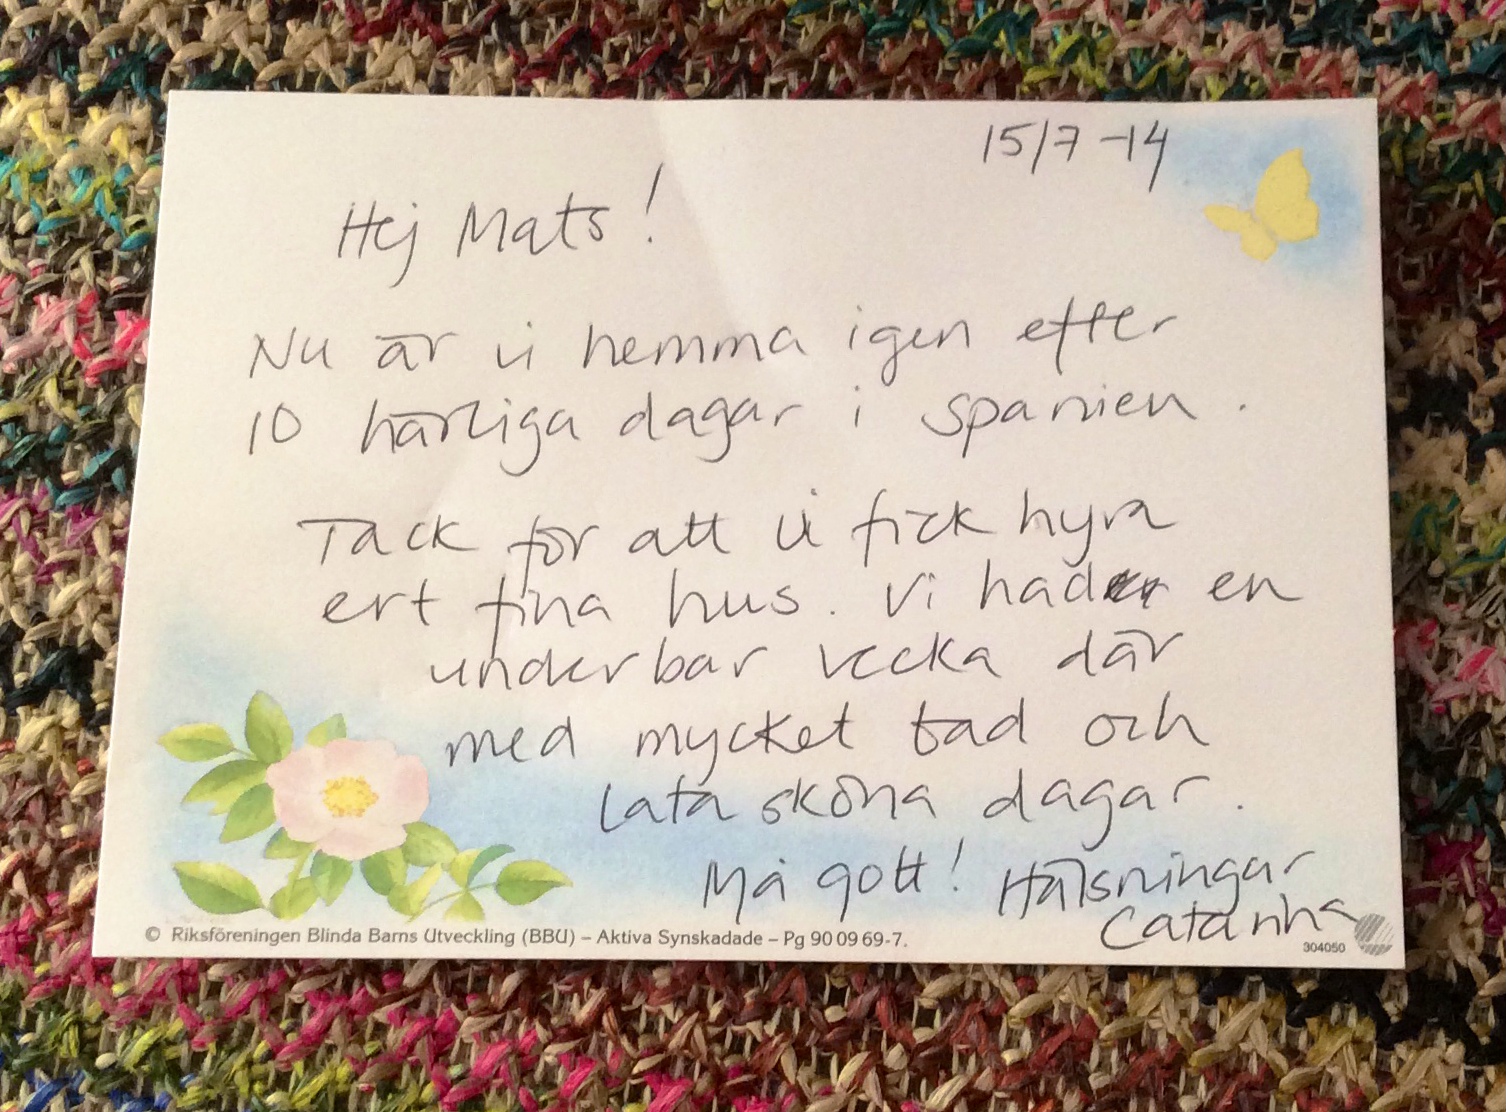 15/7 -14
Hej Mats!
Nu är vi hemma igen efter
10 härliga dagar i Spanien.
Tack för att vi fick hyra
ert fina hus. Vi hade en
underbar vecka där
med mycket bad och
lata sköna dagar.
Må gott! Hälsningar
© Riksföreningen Blinda Barns Utveckling (BBU) – Aktiva Synskadade – Pg 90 09 69-7.
304050